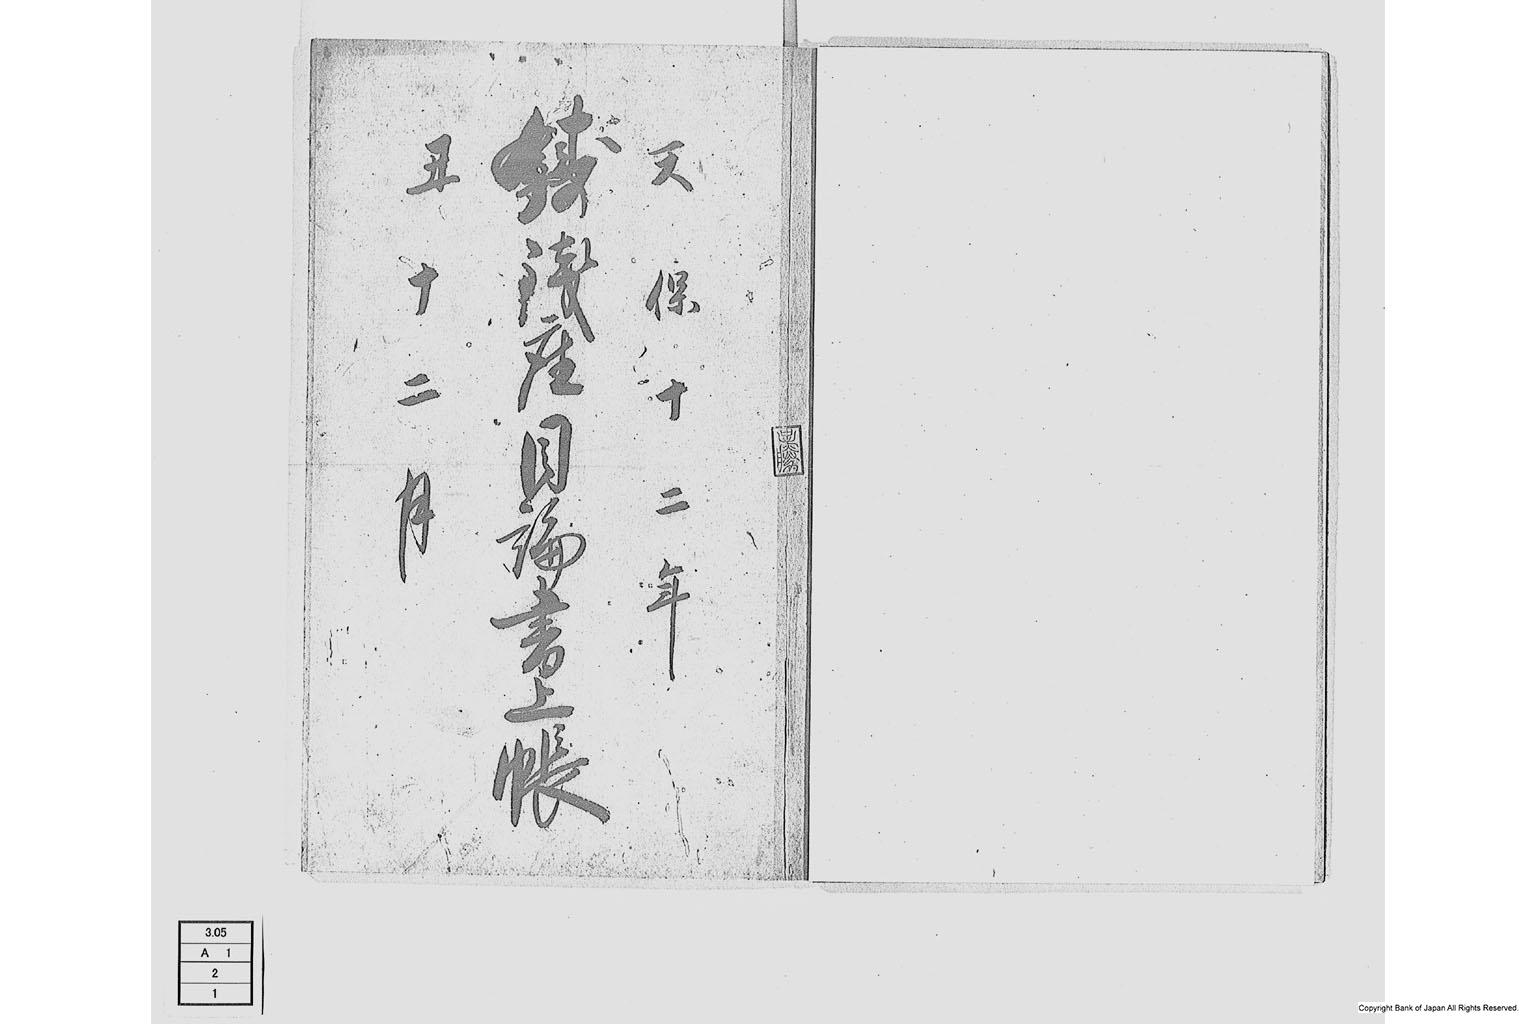 天保十二年
鐵淺座目論書上帳
丑十二月
3.05
A 1
2
1
Copyright Bank of Japan All Rights Reserved.